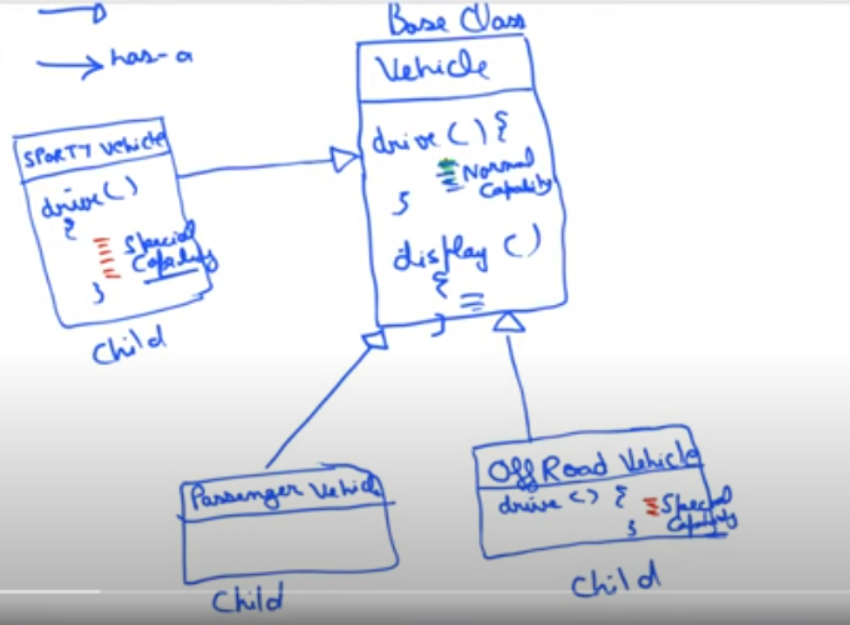 has-a
Base Class
Vehicle
drive () {
Normal
Capability
}
display ()
{
}
SPORTY Vehicle
drive()
{
Special
Capability
}
Child
Passenger Vehicle
Child
Off Road Vehicle
drive () {
Special
Capability
}
Child